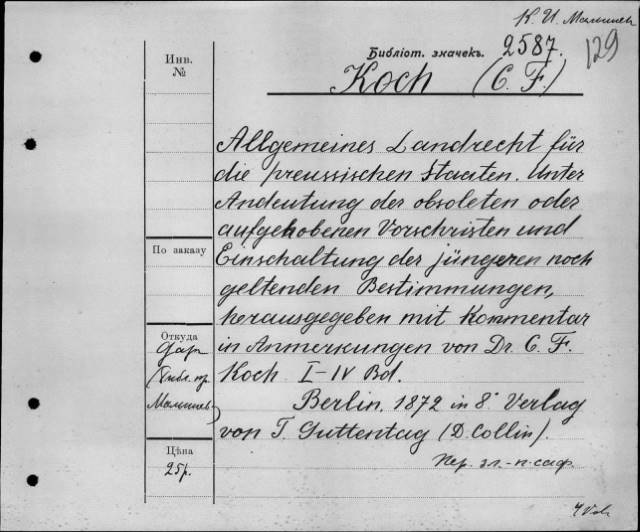 К. И. Малышев
129
Инв.
№
Библіот. значекъ. 2587.
Koch (C. F.)
Allgemeines Landrecht für
die preussischen Staaten. Unter
Andeutung der obsoleten oder
aufgehobenen Vorschristen und
По заказу
Einschaltung der jüngeren noch
geltenden Bestimmungen,
herausgegeben mit Kommentar
Откуда
in Anmerkungen von Dr. C. F.
Дар
Koch I-IV Bd.
(Библ. пр.
Малышев)
Berlin, 1872 in 8° Verlag
von T. Guttentag (D. Collin).
Цѣна
25 р.
Пер. зл.-п-саф.
4 Vol.